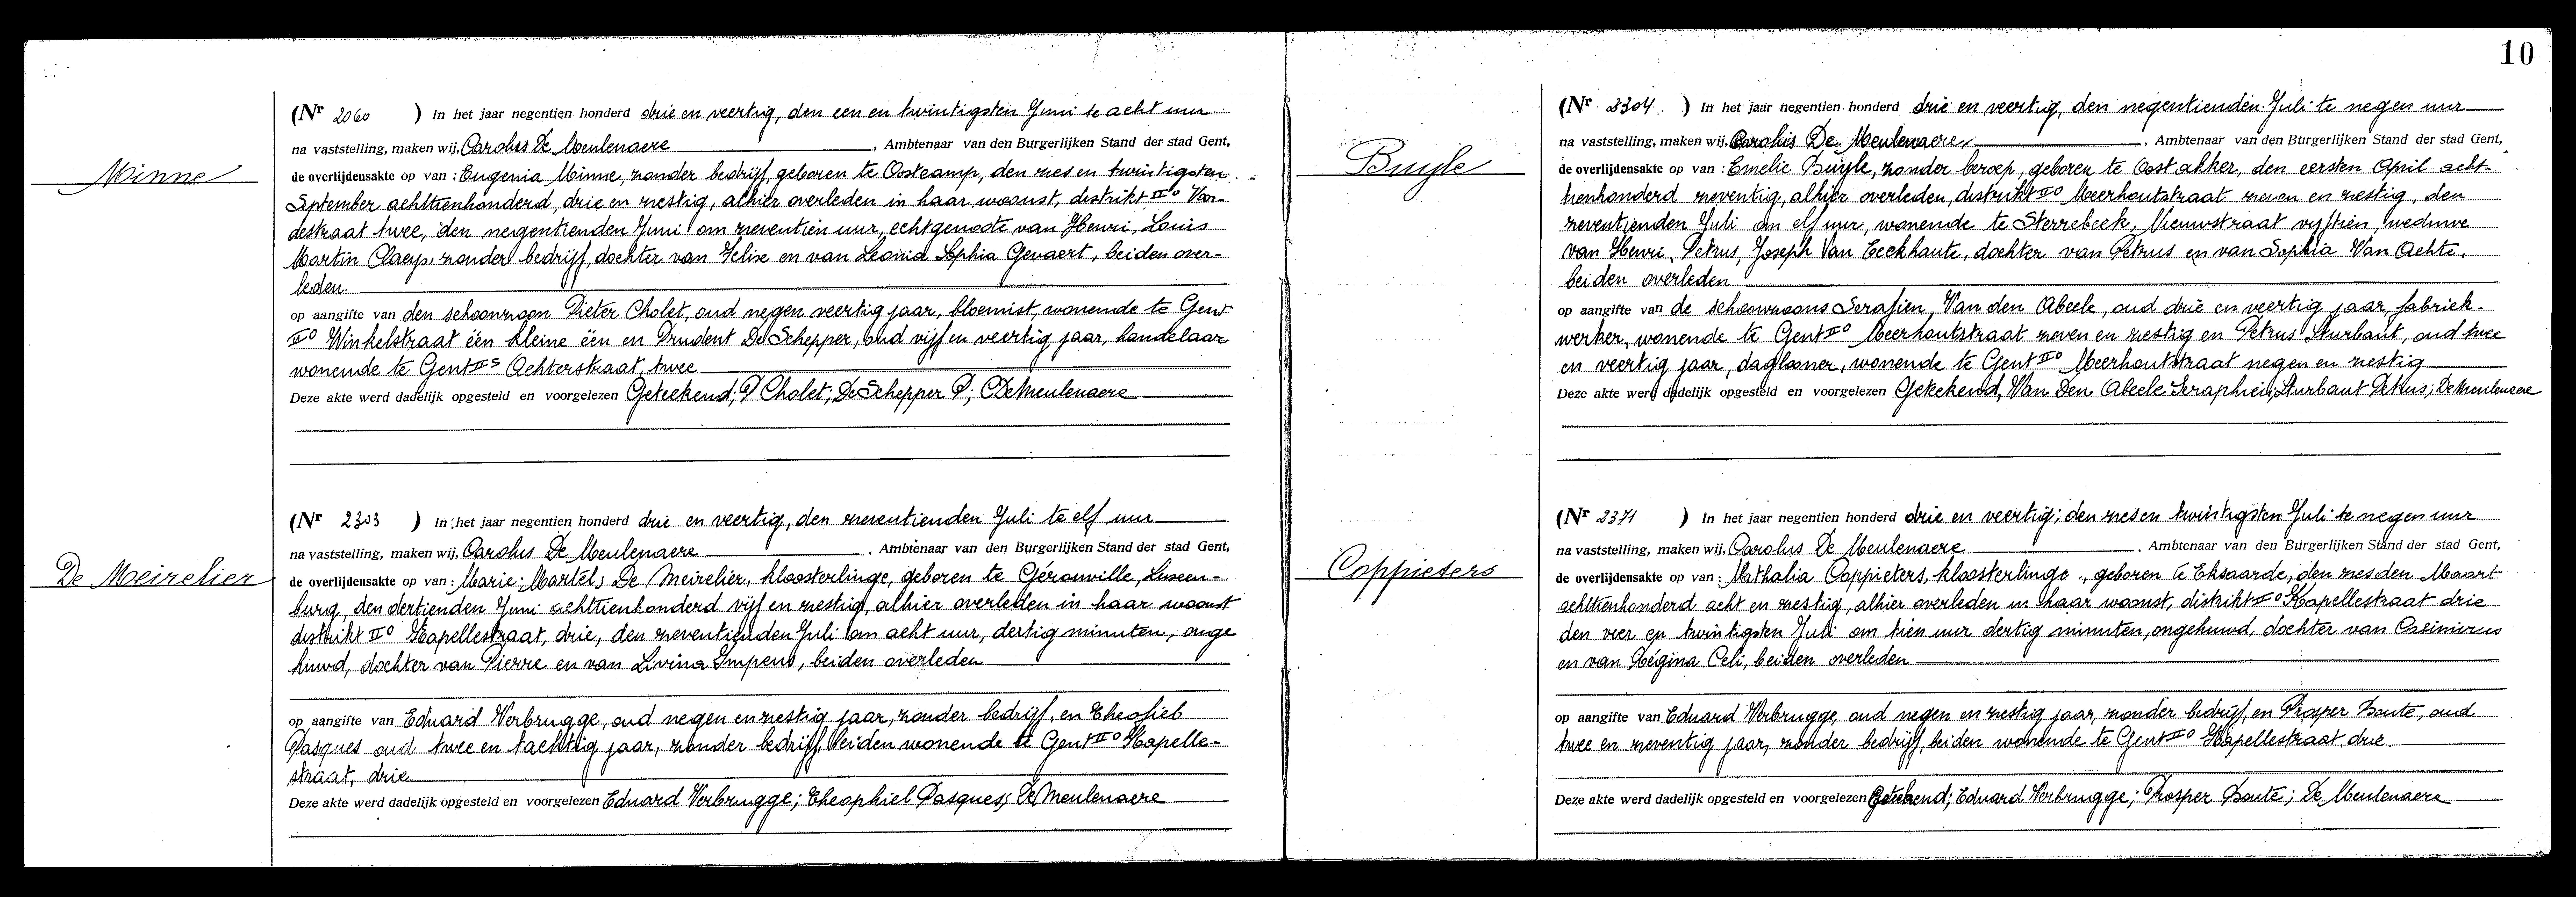 10
Minne
(Nr 2060 ) In het jaar negentien honderd drie en veertig, den een en twintigsten Juni te acht uur
na vaststelling, maken wij, Carolus De Meulenaere, Ambtenaar van den Burgerlijken Stand der stad Gent,
de overlijdensakte op van : Eugenia Minne, zonder bedrijf, geboren te Oostcamp, den zes en twintigsten
September achttienhonderd, drie en zestig, alhier overleden in haar woonst, distrikt IIo Von-
destraat twee, den negentienden Juni om zeventien uur, echtgenoote van Henri, Louis
Martin Claeys, zonder bedrijf, dochter van Felix en van Leonia Sophia Gevaert, beiden over-
leden.
op aangifte van den schoonzoon Pieter Cholet, oud negen veertig jaar, bloemist, wonende te Gent
IIo Winkelstraat één kleine één en Prudent De Schepper, oud vijf en veertig jaar, handelaar
wonende te Gent IIs Achterstraat, twee
Deze akte werd dadelijk opgesteld en voorgelezen Geteekend; P Cholet; De Schepper P; C De Meulenaere
De Meirelier
(Nr 2303 ) In het jaar negentien honderd drie en veertig, den zeventienden Juli te elf uur
na vaststelling, maken wij, Carolus De Meulenaere, Ambtenaar van den Burgerlijken Stand der stad Gent,
de overlijdensakte op van : Marie, Martel, De Meirelier, kloosterlinge, geboren te Gérouville, Luxem-
burg, den dertienden Juni achttienhonderd vijf en zestig, alhier overleden in haar woonst
distrikt IIo Kapellestraat, drie, den zeventienden Juli om acht uur, dertig minuten, onge
huwd, dochter van Pierre en van Livina Impens, beiden overleden
op aangifte van Eduard Verbrugge, oud negen en zestig jaar, zonder bedrijf, en Theofiel
Pasques oud twee en tachtig jaar, zonder bedrijf, beiden wonende te Gent IIo Kapelle-
straat, drie
Deze akte werd dadelijk opgesteld en voorgelezen Eduard Verbrugge; Theophiel Pasques; De Meulenaere
Buyle
(Nr 2304. ) In het jaar negentien honderd drie en veertig, den negentienden Juli te negen uur
na vaststelling, maken wij, Carolus De Meulenaere, Ambtenaar van den Burgerlijken Stand der stad Gent,
de overlijdensakte op van : Emelie Buyle, zonder beroep, geboren te Oostakker, den eersten April acht-
tienhonderd zeventig, alhier overleden, distrikt IIo Meerhoutstraat zeven en zestig, den
zeventienden Juli om elf uur, wonende te Sterrebeek, Nieuwstraat vijftien, weduwe
van Henri, Petrus, Joseph Van Eeckhaute, dochter van Petrus en van Sophia Van Achte,
beiden overleden
op aangifte van de schoonzoons Serafien, Van den Abeele, oud drie en veertig jaar, fabriek-
werker, wonende te Gent IIo Meerhoutstraat zeven en zestig en Petrus Sturbaut, oud twee
en veertig jaar, daglooner, wonende te Gent IIo Meerhoutstraat negen en zestig
Deze akte werd dadelijk opgesteld en voorgelezen Geteekend, Van Den Abeele Seraphien; Sturbaut Petrus; De Meulenaere
Coppieters
(Nr 2371 ) In het jaar negentien honderd drie en veertig; den zes en twintigsten Juli te negen uur
na vaststelling, maken wij, Carolus De Meulenaere, Ambtenaar van den Burgerlijken Stand der stad Gent,
de overlijdensakte op van : Nathalia Coppieters, kloosterlinge, geboren te Eksaarde, den zesden Maart
achttienhonderd acht en zestig, alhier overleden in haar woonst, distrikt IIo Kapellestraat drie
den vier en twintigsten Juli om tien uur dertig minuten, ongehuwd, dochter van Casimirus
en van Régina Celi, beiden overleden
op aangifte van Eduard Verbrugge, oud negen en zestig jaar, zonder bedrijf, en Prosper Boute, oud
twee en zeventig jaar, zonder bedrijf, beiden wonende te Gent IIo Kapellestraat drie.
Deze akte werd dadelijk opgesteld en voorgelezen Geteekend; Eduard Verbrugge; Prosper Boute; De Meulenaere